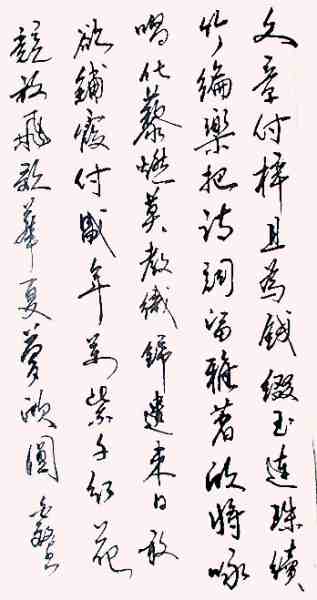 文章付梓且為錢綴玉連珠續
竹編樂把詩詞留雅著欣將咏
唱化藜燃莫教織錦遺來日敢
欲鋪霞付盛年萬紫千紅花
競放飛歌華夏夢欣圓